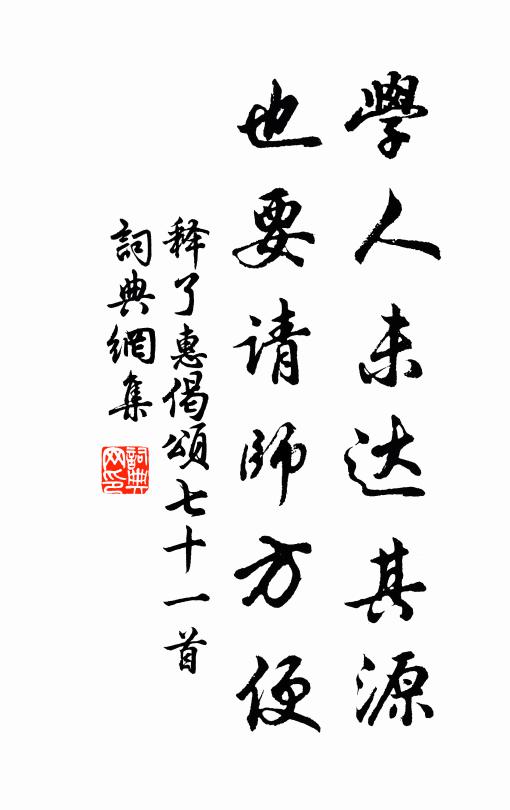 學人未达其源
也要请師方便
释了惠偈頌七十一首
詞典網集
詞典网印